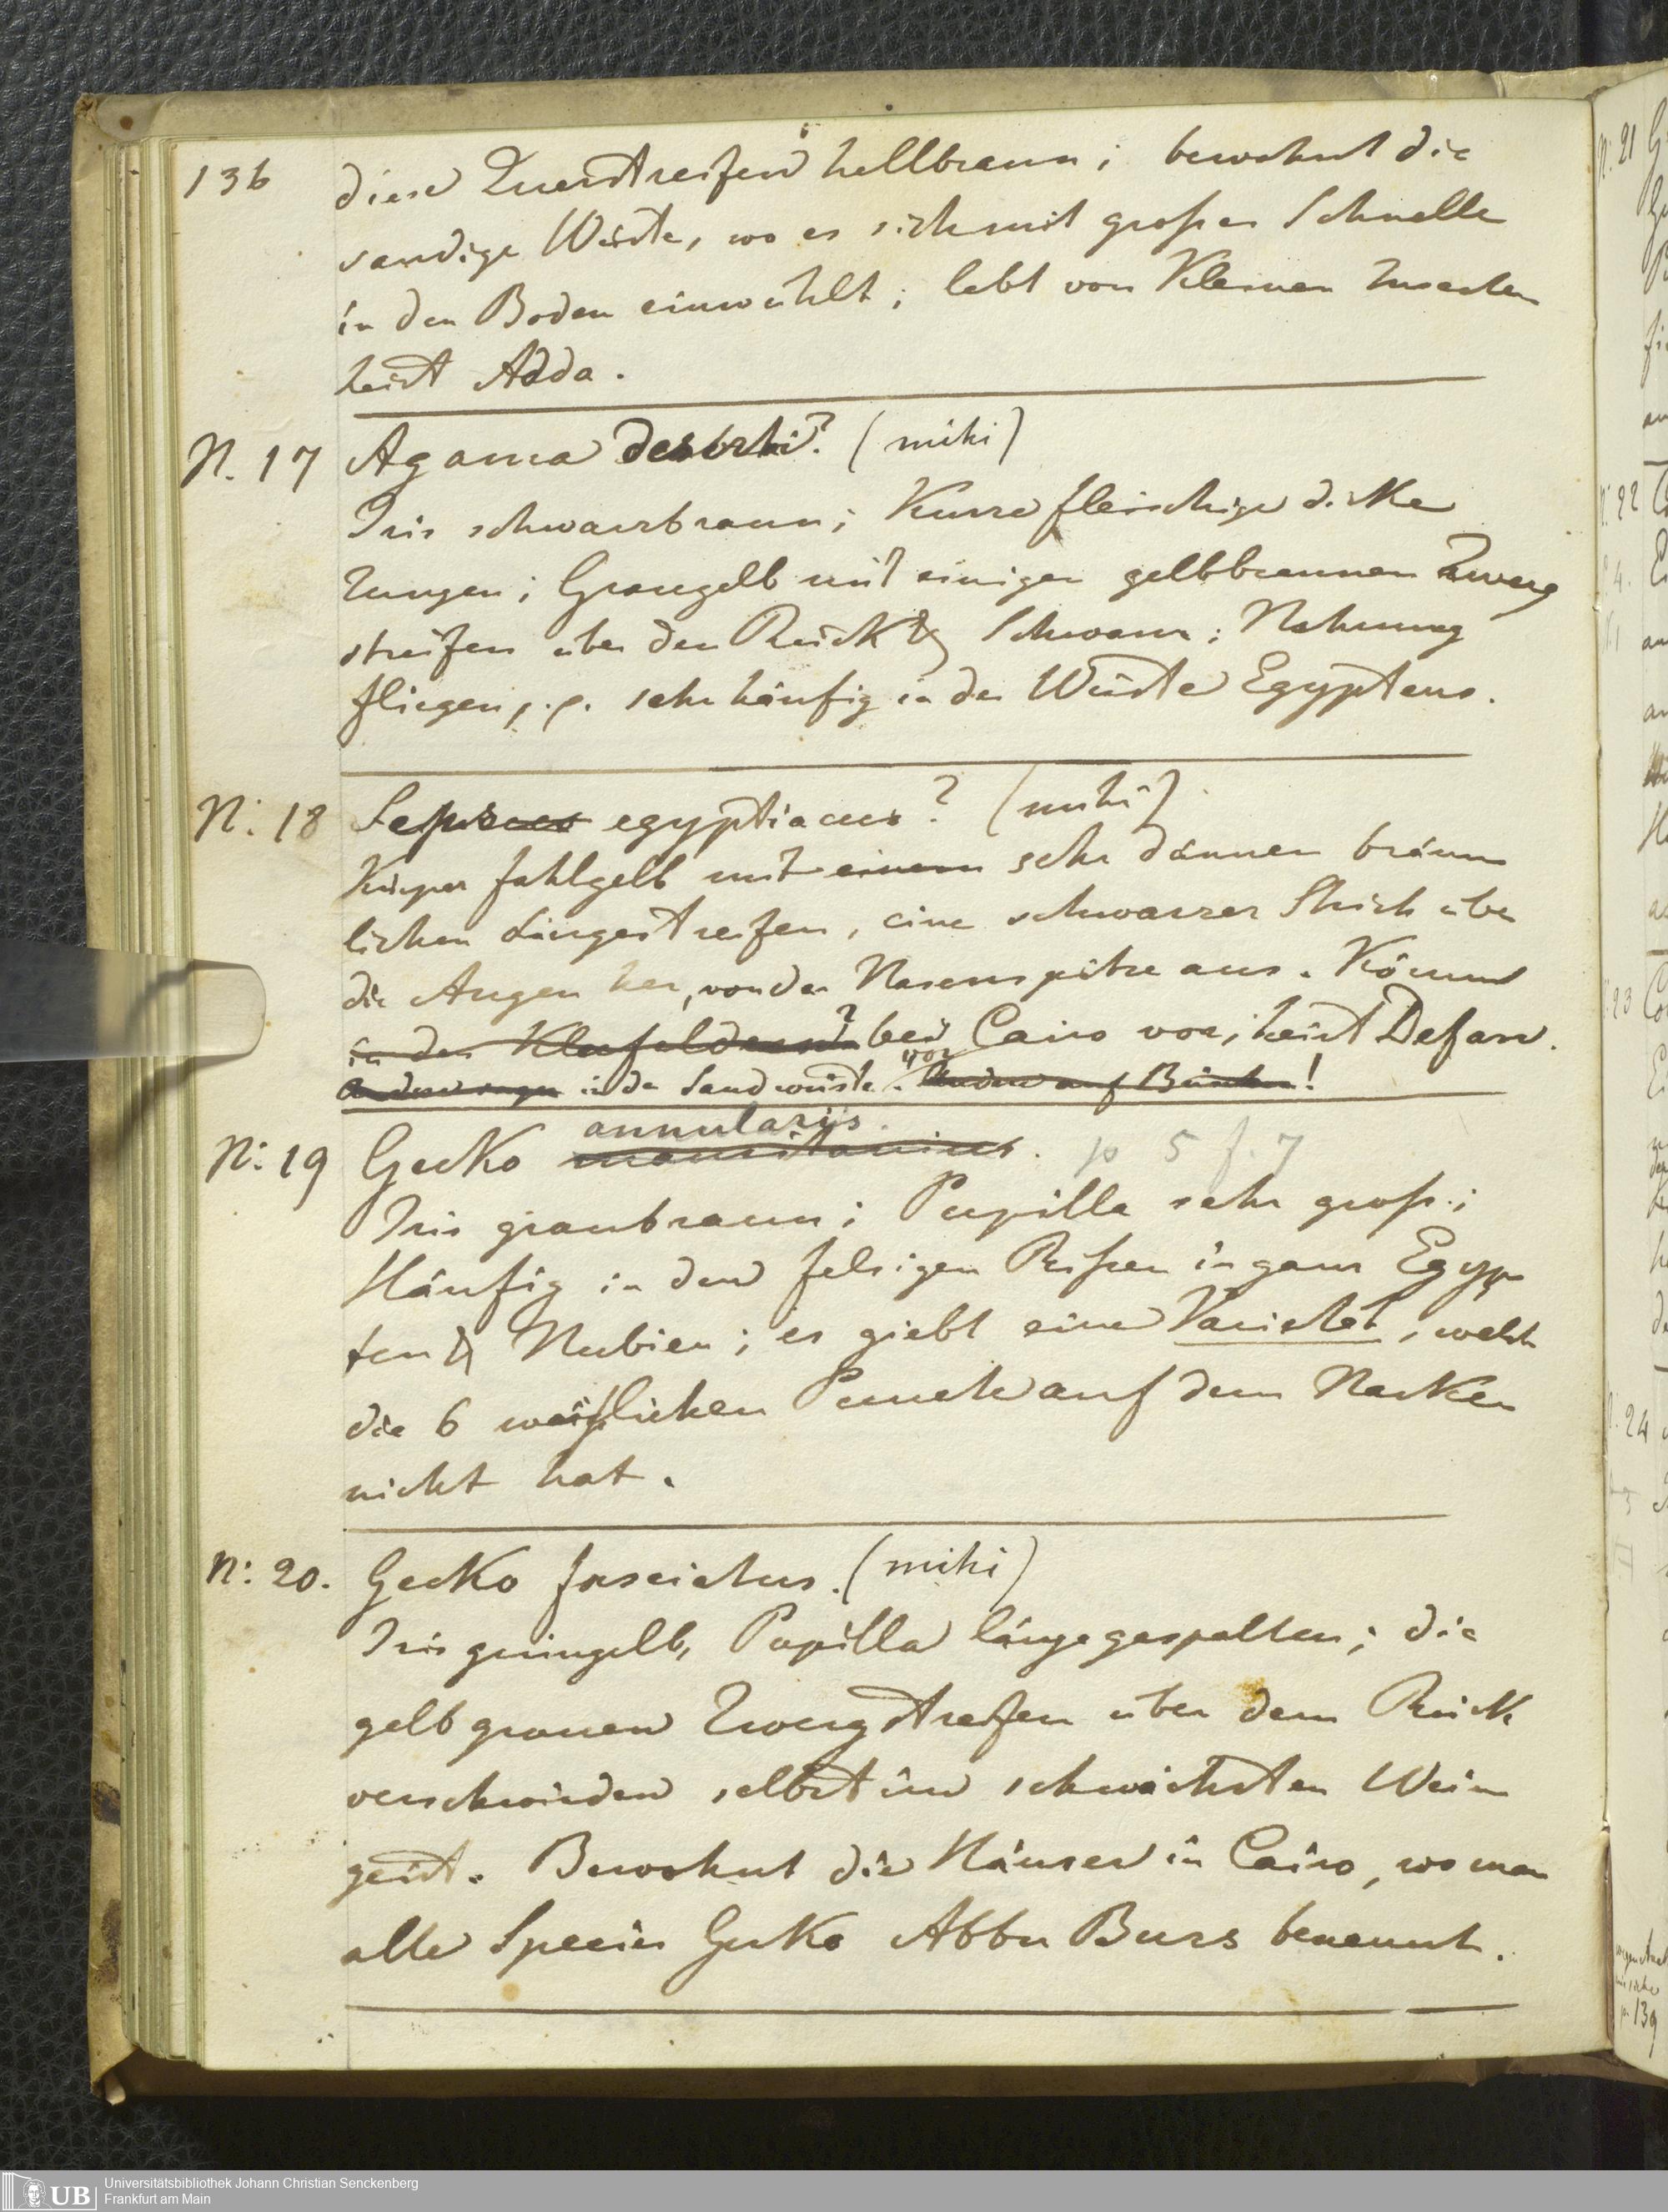 136
diese Querstreifen hellbraun; bewohnt die
sandige Wüste, wo es sich mit großer Schnelle
in den Boden einwühlt; lebt von Kleinen Insecten
heist Adda.
N. 17 Agama deserti? (mihi)
Iris schwarzbraun; Kurze fleischige dicke
Zungen; Graugelb mit einigen gelbbraunen Zwerg
streifen über den Rück & Schwanz; Nahrung
fliegen, p. p. sehr häufig in der Wüste Egyptens.
N: 18 Sepscus egyptiacus? (mihi)
Körper fahlgelb mit einem sehr dünnen bräun
lichen Längestreifen, eine schwarzer Strich über
die Augen her, von der Nasenspitze aus. Kömmt
in den Kleefeldern? bei Cairo vor; heist Defan.
in der Sandwüste vor !
N: 19 Gecko annularis. p 5 f. 7
Iris graubraun; Pupille sehr groß;
Häufig in den felsigen Rißen in ganz Egyp
ten & Nubien; es giebt eine Varietet, welch
die 6 weißlichen Puncte auf dem Nacken
nicht hat.
N: 20. Gecko fasciatus. (mihi)
Iris grüngelb, Pupilla länge gespalten; die
gelb grauen Zwergstreifen über dem Rück
verschwinden selbst im schwächsten Wein
geist. Bewohnt die Häuser in Cairo, wo man
alle Species Gecko Abbu Burs benennt.
N: 21
N: 22
23
24
p. 139
Universitätsbibliothek Johann Christian Senckenberg
Frankfurt am Main
UB